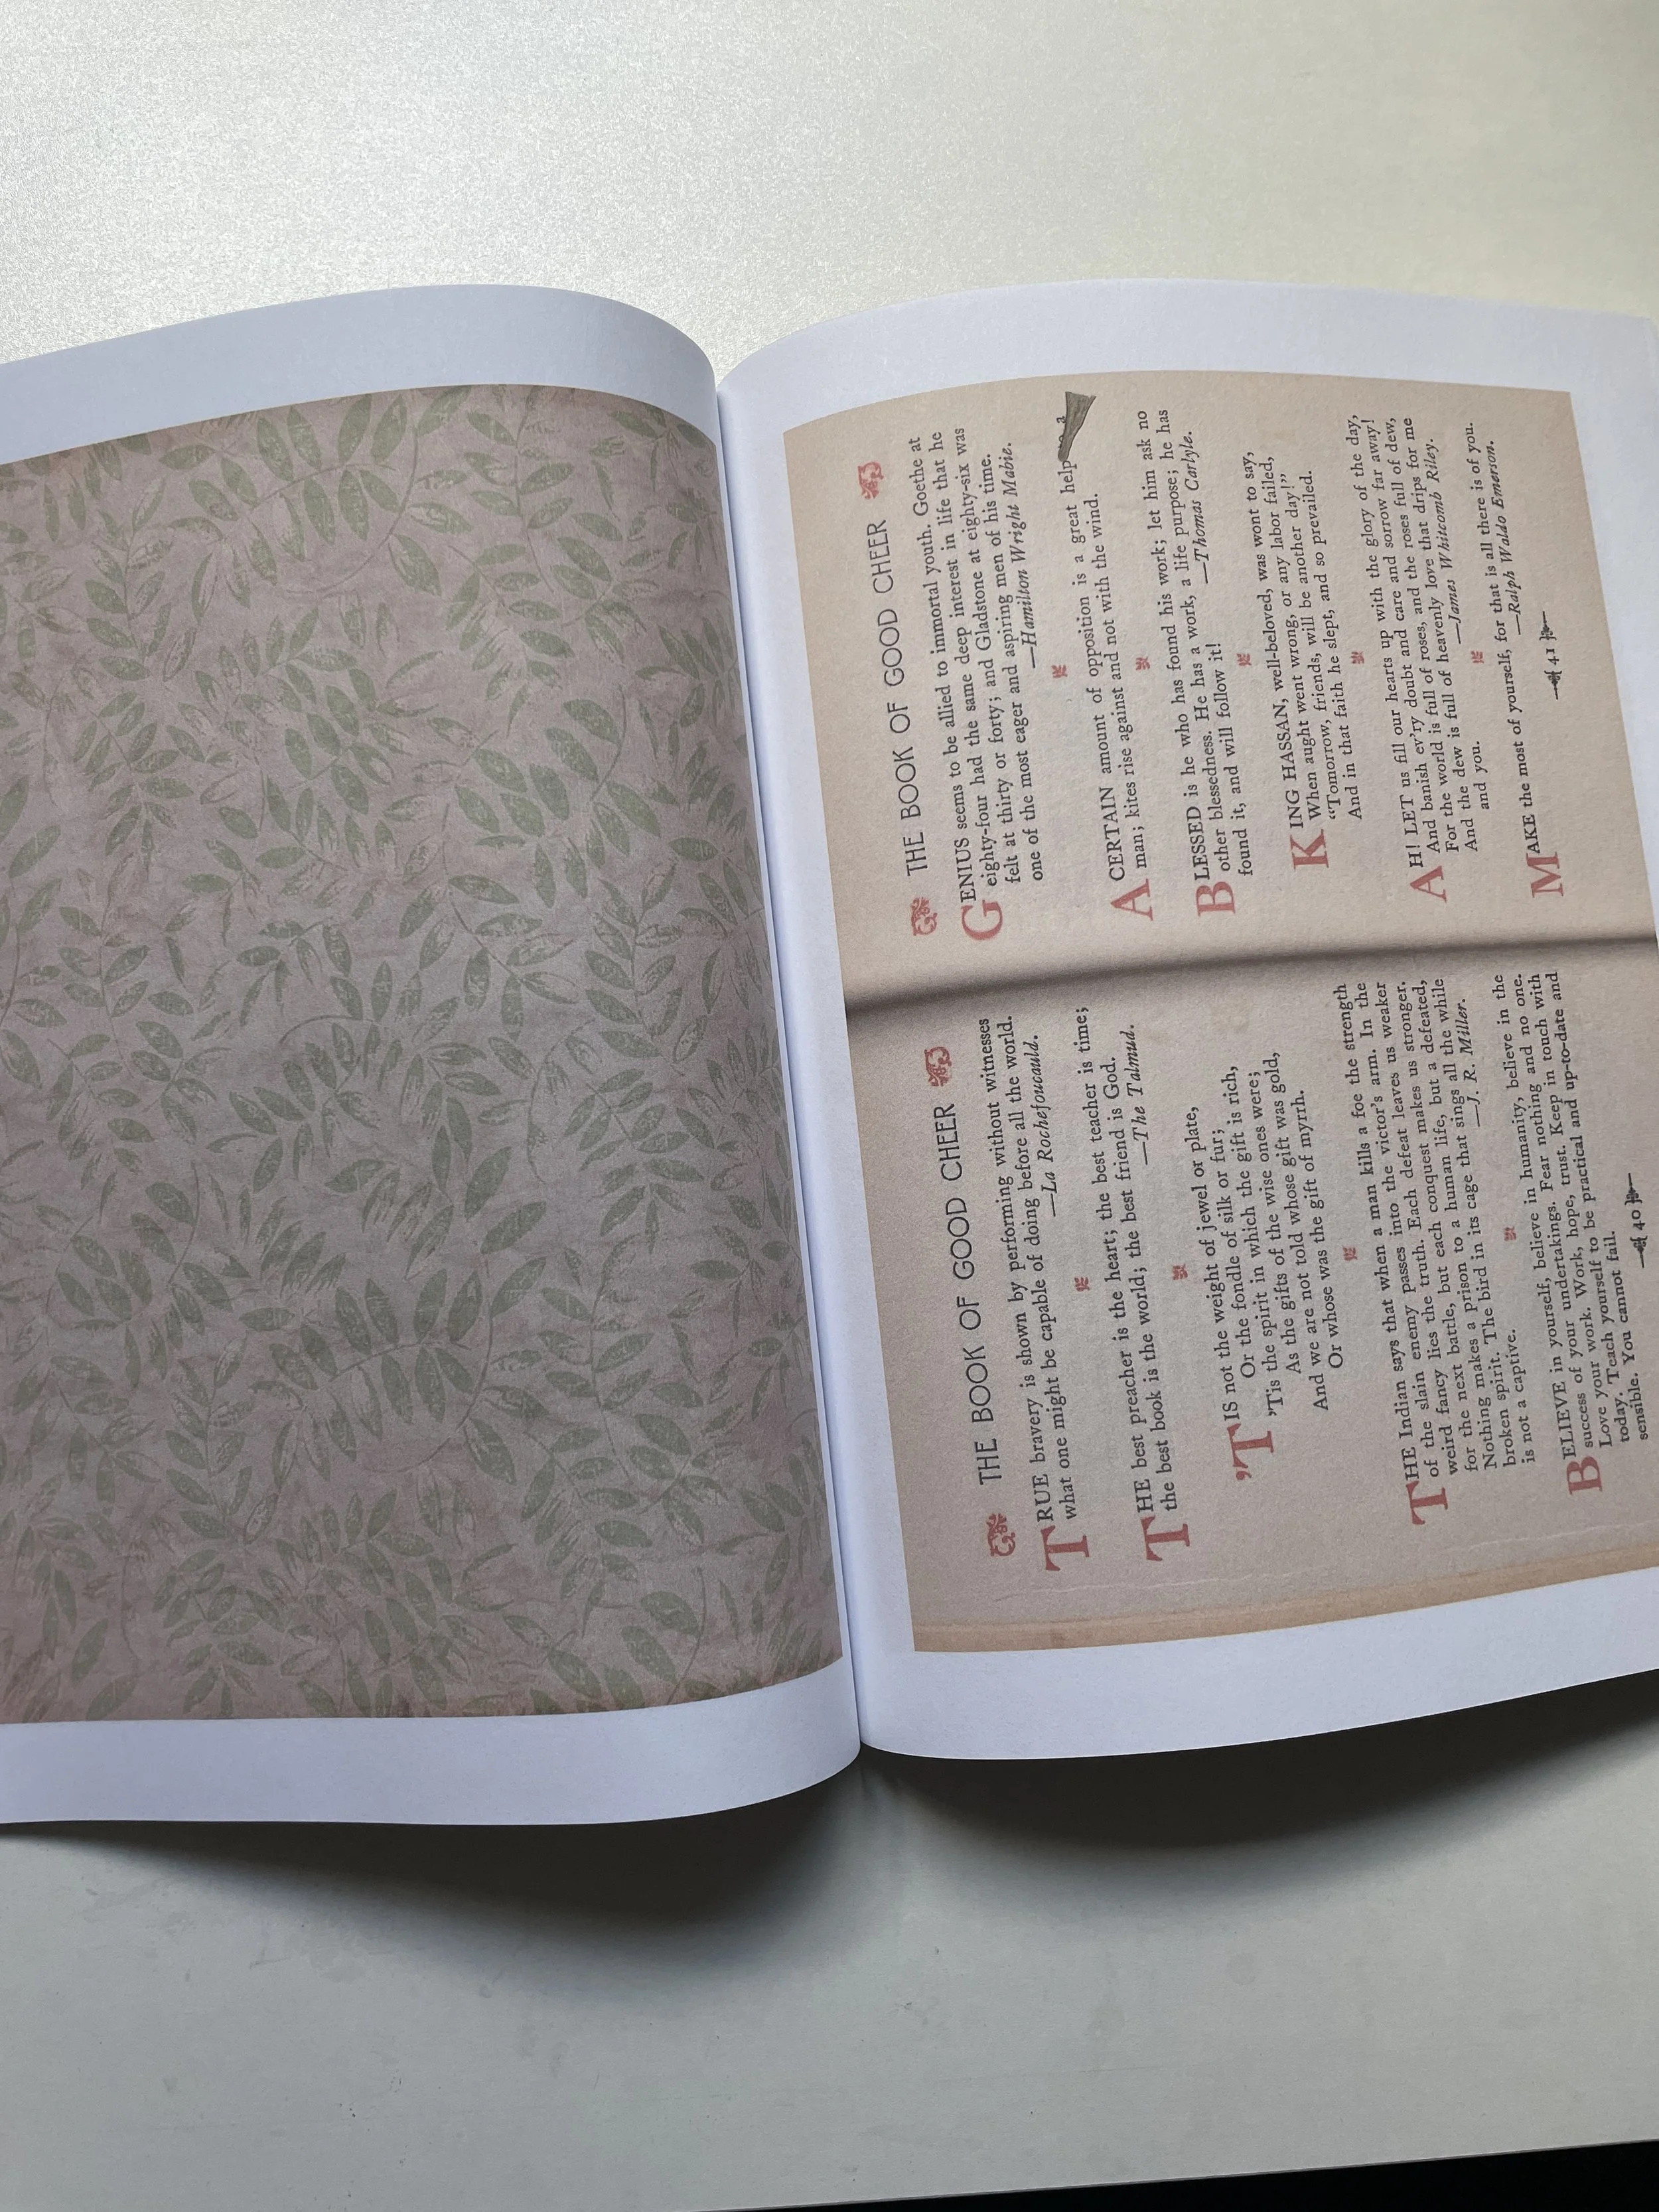 THE BOOK OF GOOD CHEER
TRUE bravery is shown by performing without witnesses
what one might be capable of doing before all the world.
—La Rochefoucauld.
THE best preacher is the heart; the best teacher is time;
the best book is the world; the best friend is God.
—The Talmud.
'TIS not the weight of jewel or plate,
Or the fondle of silk or fur;
'Tis the spirit in which the gift is rich,
As the gifts of the wise ones were;
And we are not told whose gift was gold,
Or whose was the gift of myrrh.
THE Indian says that when a man kills a foe the strength
of the slain enemy passes into the victor's arm. In the
weird fancy lies the truth. Each defeat leaves us weaker
for the next battle, but each conquest makes us stronger.
Nothing makes a prison to a human life, but a defeated,
broken spirit. The bird in its cage that sings all the while
is not a captive.
—J. R. Miller.
BELIEVE in yourself, believe in humanity, believe in the
success of your undertakings. Fear nothing and no one.
Love your work. Work, hope, trust. Keep in touch with
today. Teach yourself to be practical and up-to-date and
sensible. You cannot fail.
40
THE BOOK OF GOOD CHEER
GENIUS seems to be allied to immortal youth. Goethe at
eighty-four had the same deep interest in life that he
felt at thirty or forty; and Gladstone at eighty-six was
one of the most eager and aspiring men of his time.
—Hamilton Wright Mabie.
A CERTAIN amount of opposition is a great help to a
man; kites rise against and not with the wind.
BLESSED is he who has found his work; let him ask no
other blessedness. He has a work, a life purpose; he has
found it, and will follow it!
—Thomas Carlyle.
KING HASSAN, well-beloved, was wont to say,
When aught went wrong, or any labor failed,
"Tomorrow, friends, will be another day!"
And in that faith he slept, and so prevailed.
AH! LET us fill our hearts up with the glory of the day,
And banish ev'ry doubt and care and sorrow far away!
For the world is full of roses, and the roses full of dew,
And the dew is full of heavenly love that drips for me
and you.
—James Whitcomb Riley.
MAKE the most of yourself, for that is all there is of you.
—Ralph Waldo Emerson.
41